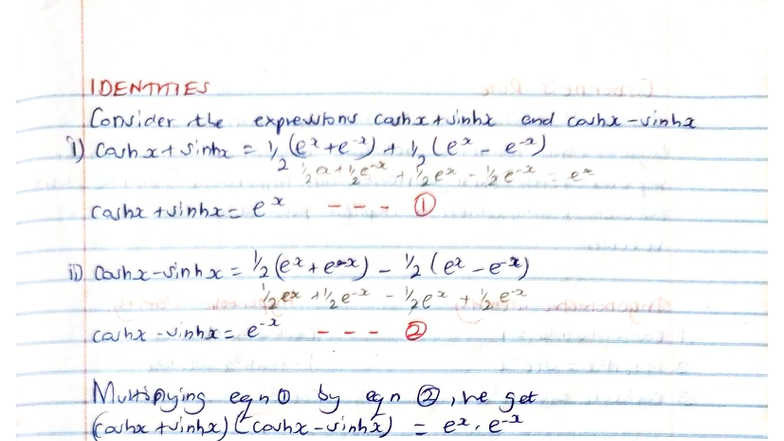 IDENTITIES
Consider the expressions coshx + sinhx and coshx - sinhx
i) coshx + sinhx = 1/2 (e^x + e^-x) + 1/2 (e^x - e^-x)
1/2 e^x + 1/2 e^-x + 1/2 e^x - 1/2 e^-x = e^x
coshx + sinhx = e^x - - - ①
ii) coshx - sinhx = 1/2 (e^x + e^-x) - 1/2 (e^x - e^-x)
1/2 e^x + 1/2 e^-x - 1/2 e^x + 1/2 e^-x
coshx - sinhx = e^-x - - - ②
Multiplying eqn ① by eqn ②, we get
(coshx + sinhx) (coshx - sinhx) = e^x . e^-x